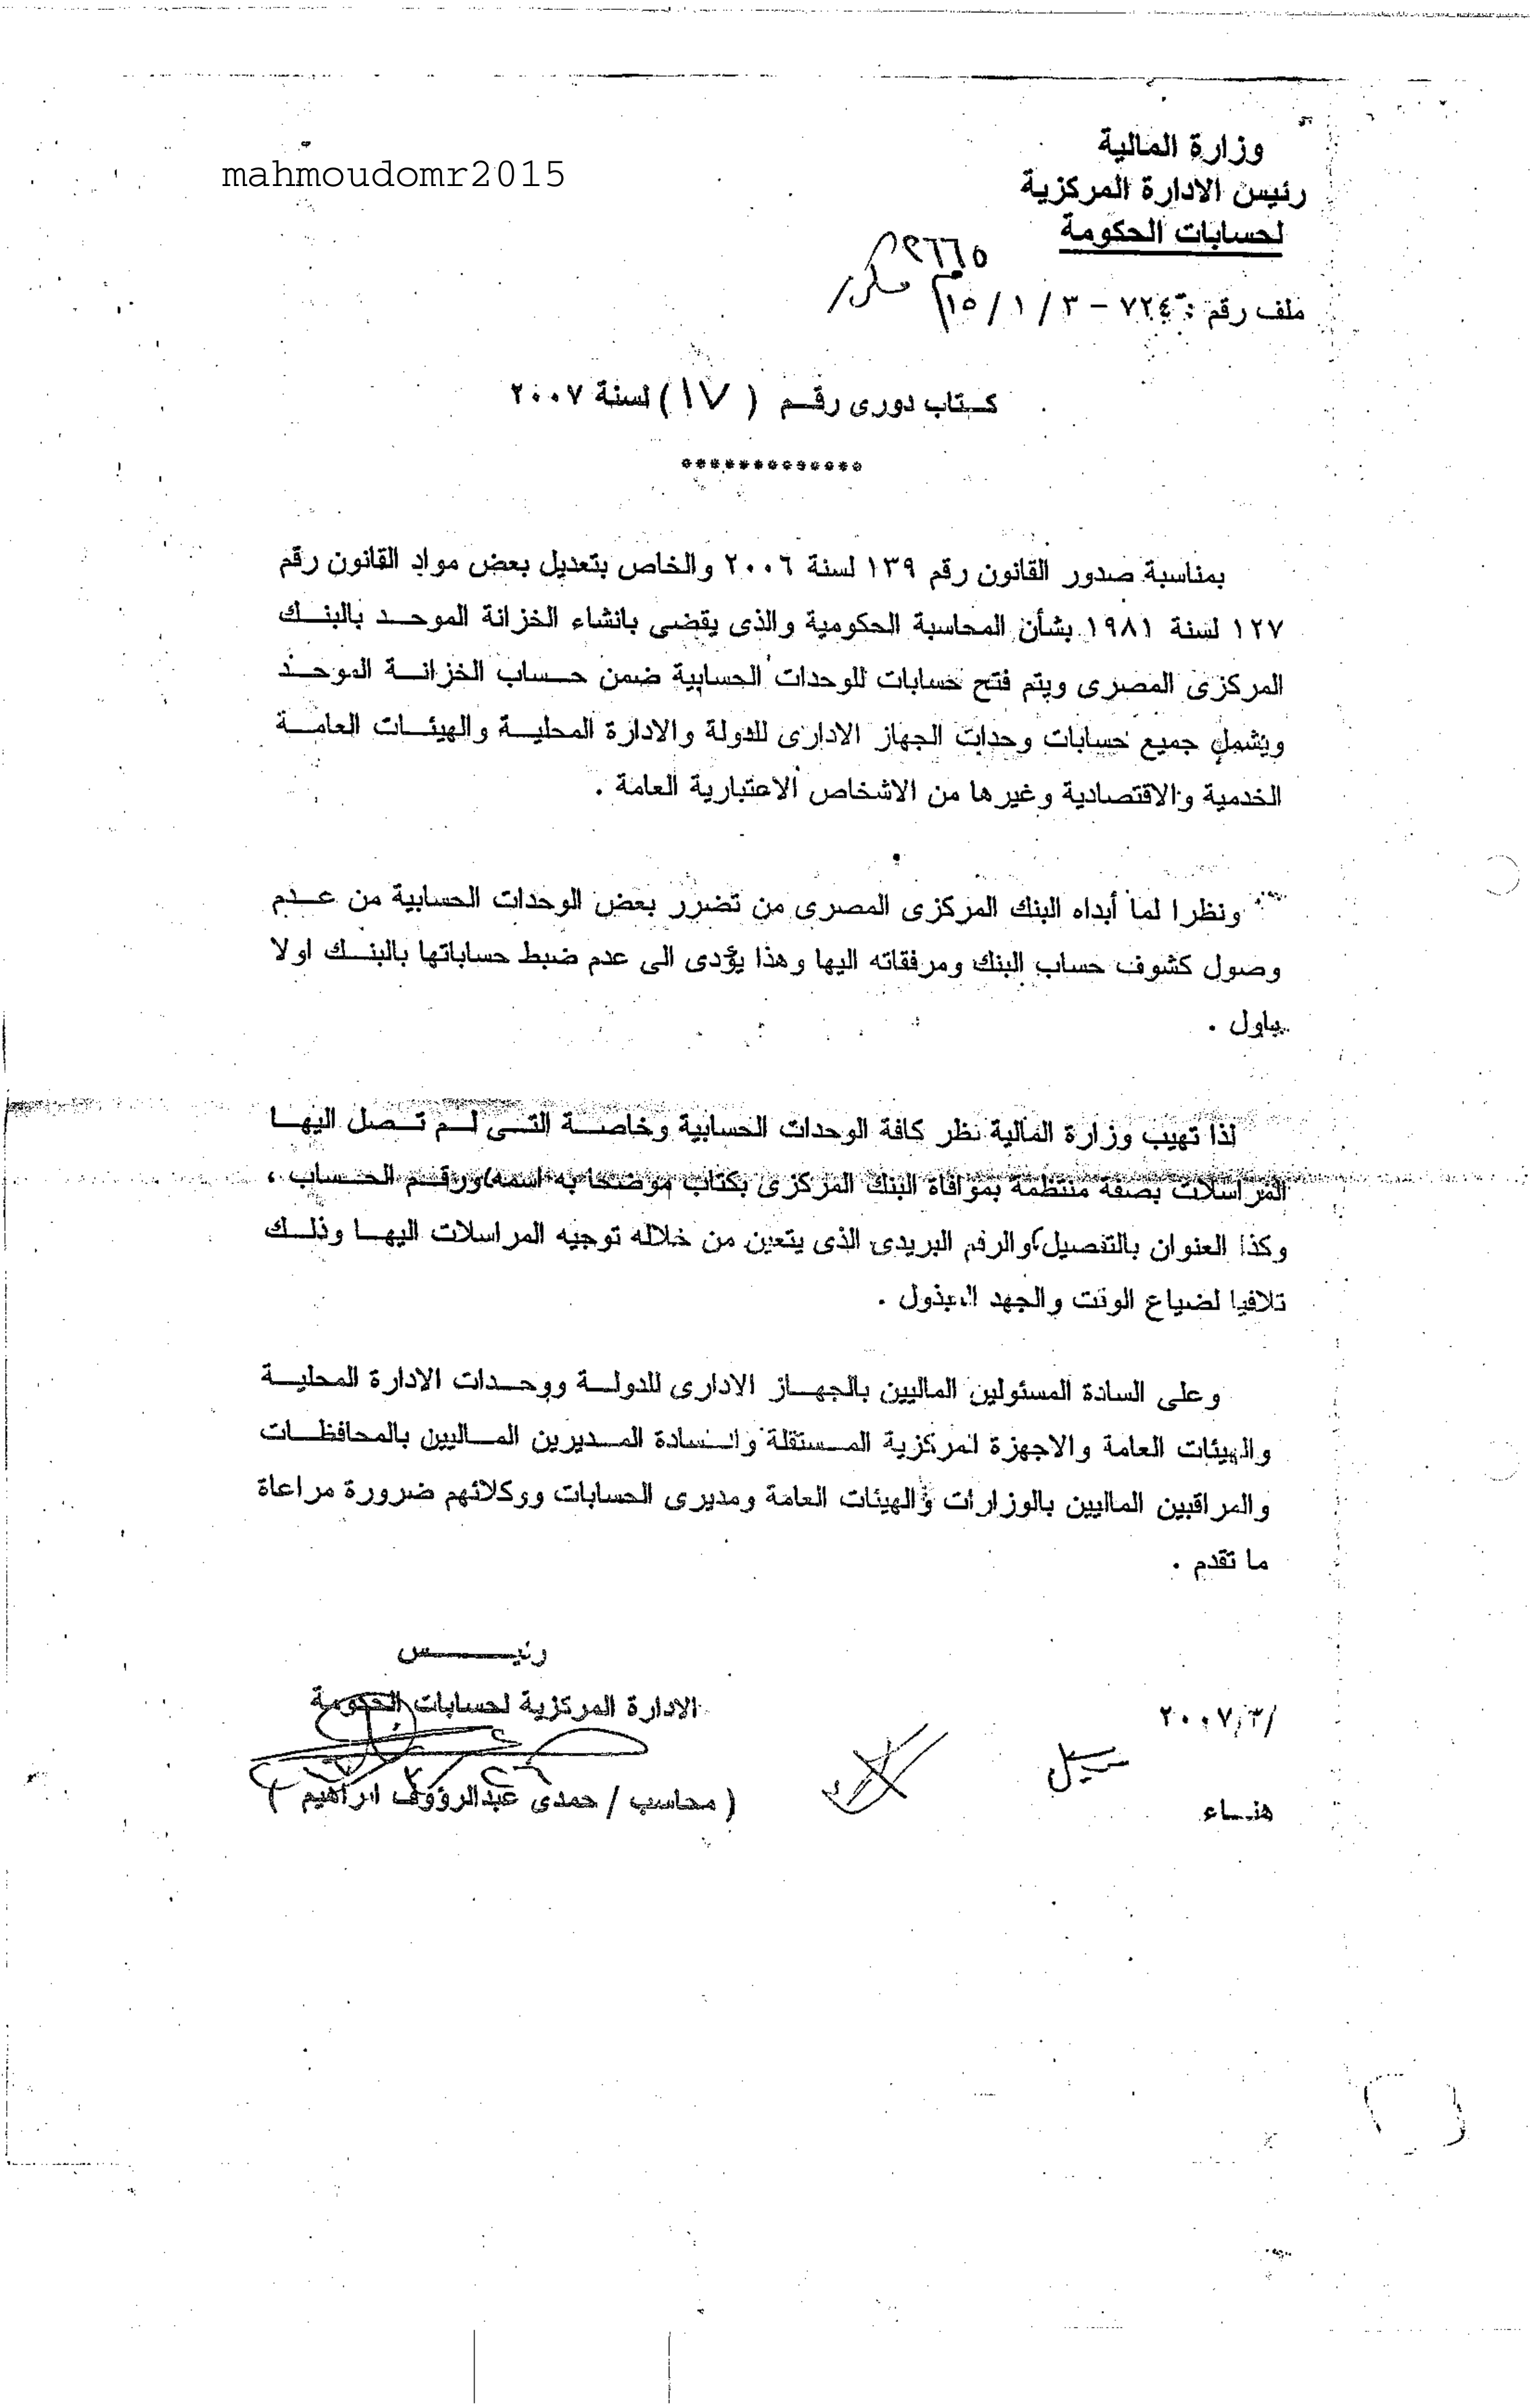 mahmoudomr2015
وزارة المالية
رئيس الادارة المركزية
لحسابات الحكومة
ملف رقم : ٧٢٤ – ٣ / ١ / ١٥
كتاب دورى رقم ( ١٧ ) لسنة ٢٠٠٧
*************
بمناسبة صدور القانون رقم ١٣٩ لسنة ٢٠٠٦ والخاص بتعديل بعض مواد القانون رقم
١٢٧ لسنة ١٩٨١ بشأن المحاسبة الحكومية والذى يقضى بانشاء الخزانة الموحد بالبنك
المركزى المصرى ويتم فتح حسابات للوحدات الحسابية ضمن حساب الخزانة الموحد
ويشمل جميع حسابات وحدات الجهاز الادارى للدولة والادارة المحلية والهيئات العامة
الخدمية والاقتصادية وغيرها من الاشخاص الاعتبارية العامة .
ونظرا لما أبداه البنك المركزى المصرى من تضرر بعض الوحدات الحسابية من عدم
وصول كشوف حساب البنك ومرفقاته اليها وهذا يؤدى الى عدم ضبط حساباتها بالبنك اولا
باول .
لذا تهيب وزارة المالية نظر كافة الوحدات الحسابية وخاصة التى لم تصل اليها
المراسلات بصفة منتظمة بموافاة البنك المركزى بكتاب موضحا به اسمه ورقم الحساب ،
وكذا العنوان بالتفصيل والرقم البريدى الذى يتعين من خلاله توجيه المراسلات اليها وذلك
تلافيا لضياع الوقت والجهد المبذول .
وعلى السادة المسئولين الماليين بالجهاز الادارى للدولة ووحدات الادارة المحلية
والهيئات العامة والاجهزة المركزية المستقلة والسادة المديرين الماليين بالمحافظات
والمراقبين الماليين بالوزارات والهيئات العامة ومديرى الحسابات ووكلائهم ضرورة مراعاة
ما تقدم .
رئيس
الادارة المركزية لحسابات الحكومة
/٣/ ٢٠٠٧
( محاسب / حمدى عبدالرؤوف ابراهيم )
هناء